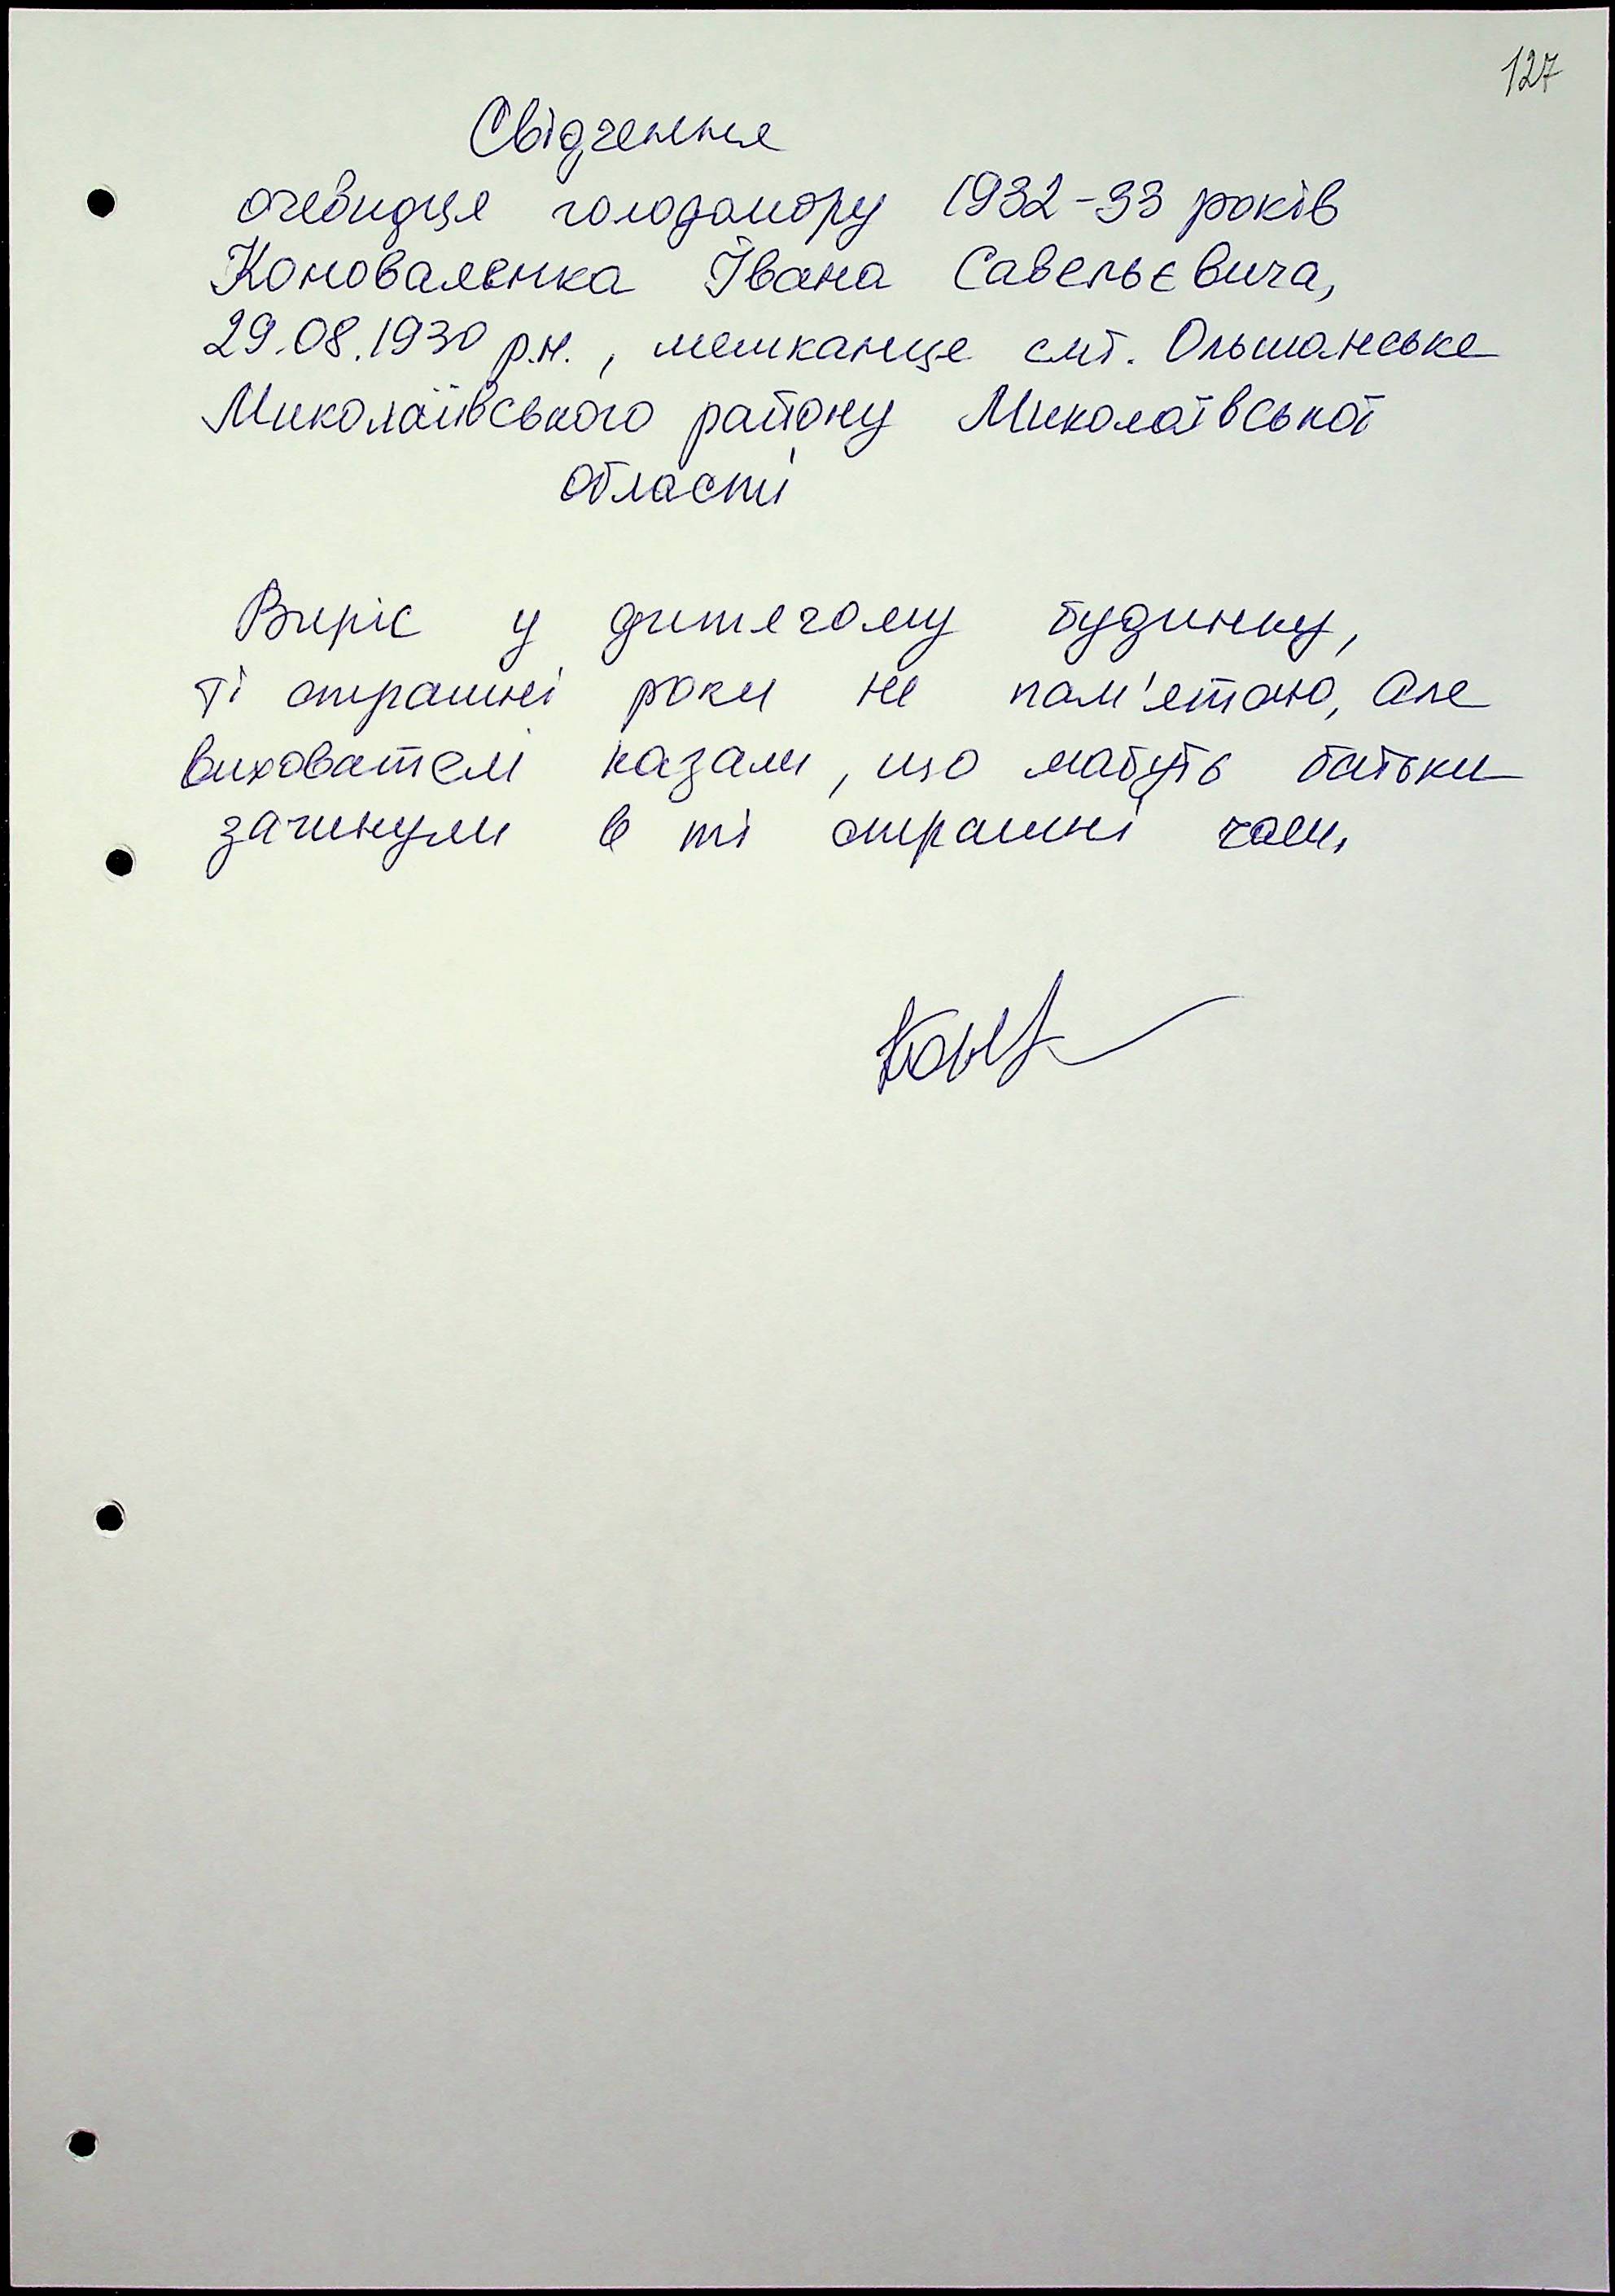 127
Свідчення
очевидця голодомору 1932-33 років
Коноваленка Івана Савельєвича,
29.08.1930 р.н., мешканця смт. Ольшанське
Миколаївського району Миколаївської
області
Виріс у дитячому будинку,
ті страшні роки не пам'ятаю, але
вихователі казали, що мабуть батьки
загинули в ті страшні часи.